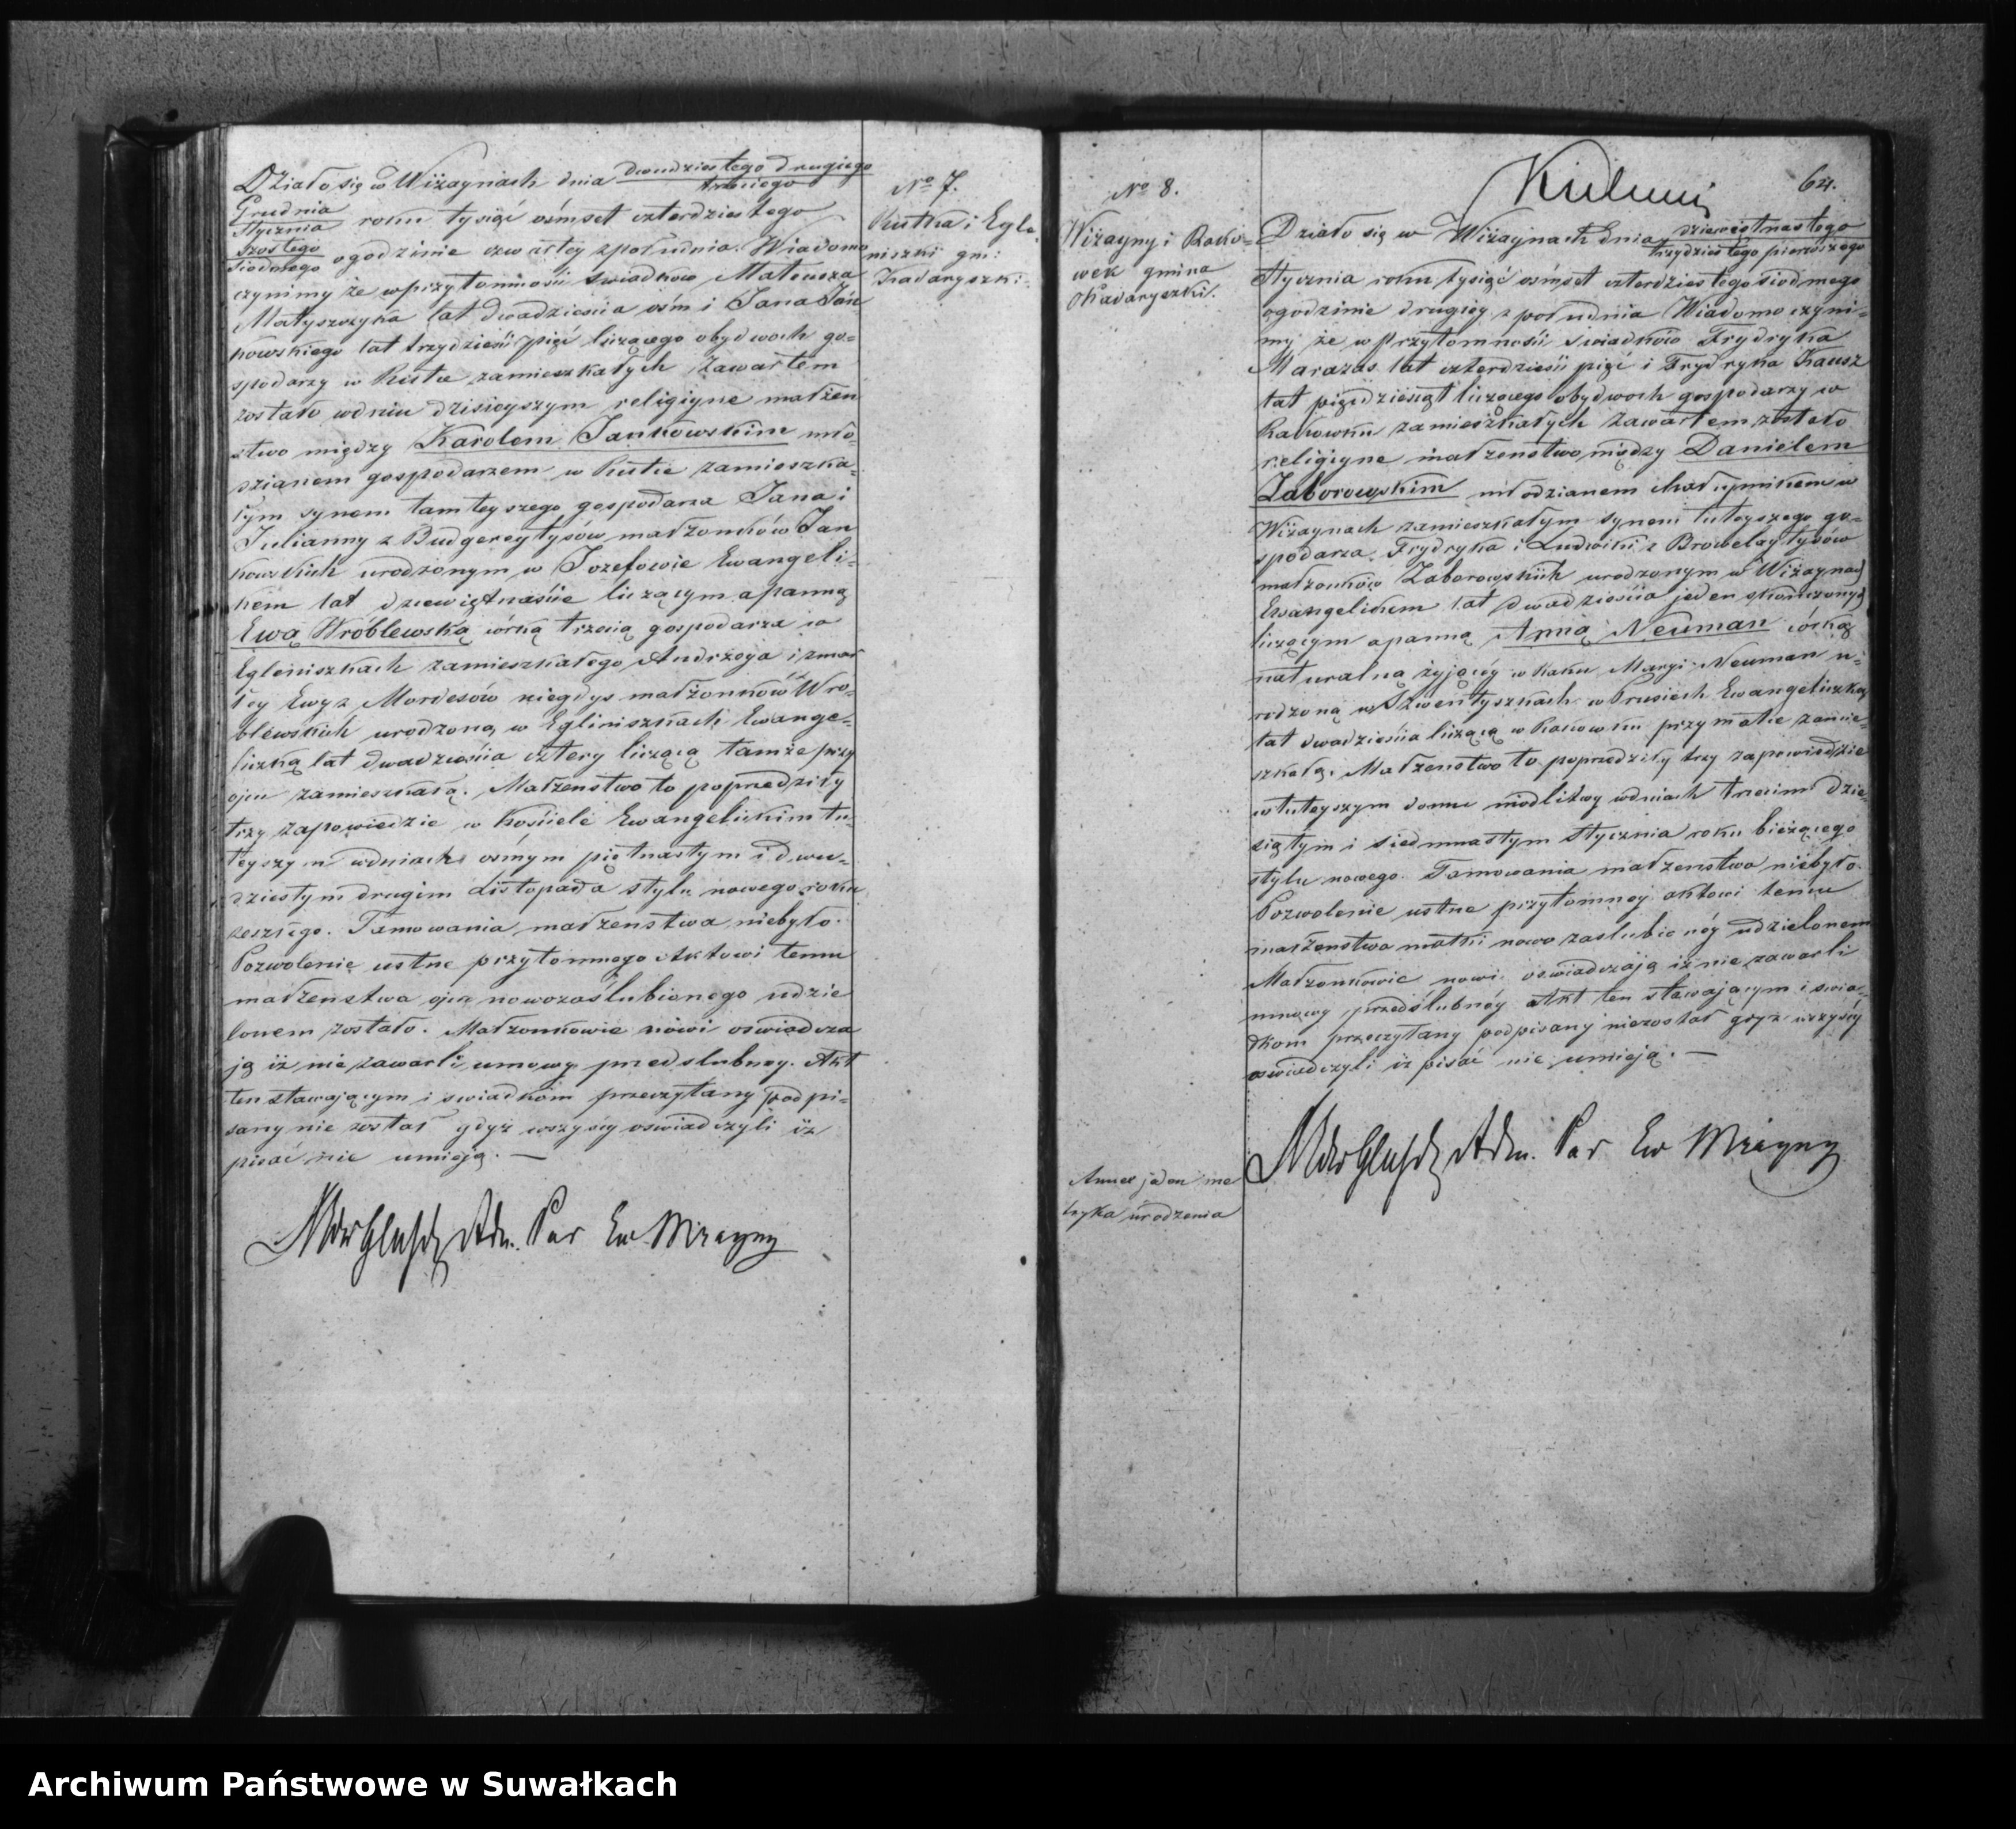 Działo się w Wiżaynach dnia dwudziestego drugiego
trzeciego
Grudnia
Stycznia roku tysiąć ośmset czterdziestego
szostego
siodmego ogodzinie czwartey zpołudnia. Wiadomo
czynimy że wprzytomności swiadkow Mateusza
Matyszczyka lat dwadzieścia ośm i Jana Jan-
kowskiego lat trzydzieści pięć liczącego obydwoch go=
spodarzy w Rutce zamieszkałych zawartem
zostało wdniu dzisieyszym religiyne małżeń
stwo między Karolem Jankowskim mło-
dzianem gospodarzem w Rutce zamieszka=
łym synem tamteyszego gospodarza Jana i
Julianny z Budgereytysów małżonków Jan
kowskich urodzonym w Jozefowie Ewangeli-
kiem lat dziewiętnaście liczącym a panną
Ewą Wróblewską córką trzecią gospodarza w
Egleniszkach zamieszkałego Andrzeja i zmar
łey Ewy z Mordesów niegdys małżonków Wro-
blewskich urodzoną w Egliniszkach Ewange-
liczką lat dwadzieścia cztery liczącą tamże przy
ojcu zamieszkałą. Małżenstwo to poprzedziły
trzy zapowiedzie w Kościele Ewangelickim tu-
teyszym wdniach ośmym piętnastym i dwu-
dziestym drugim Listopada stylu nowego roku
zeszłego. Tamowania małżenstwa niebyło.
Pozwolenie ustne przytomnego Aktowi temu
małżenstwa ojca nowozaślubionego udzie
lonem zostało. Małżonkowie nówi oswiadcza
ją iż nie zawarli umowy przedslubney. Akt
ten stawającym i swiadkom przeczytany podpi-
sany nie został gdyż wszyscy oswiadczyli iż
pisać nie umieją. —
Adm. Par Ew. Wizayny
No 7.
Rutka i Egle
niszki gm:
Kadaryszki.
No 8.
Wiżayny i Rako=
wek gmina
Kadaryszki.
Annex jeden me
tryka urodzenia
64.
Działo się w Wiżaynach dnia dziewiętnastego
trzydziestego pierwszego
Stycznia roku tysiąć ośmset czterdziestego siodmego
ogodzinie drugiey z południa Wiadomo czyni=
my że w przytomności swiadków Frydryka
Marazas lat czterdzieści pięć i Frydryka Kausz
lat pięćdziesiąt liczącego obydwoch gospodarzy w
Rakowku zamieszkałych zawartem zostało
religiyne małżenstwo między Danielem
Zaborowskim młodzianem chałupnikiem w
Wiżaynach zamieszkałym synem tuteyszego go=
spodarza Frydryka i Ludwiki z Browelaytysów
małżonków Zaborowskich urodzonym w Wiżaynach
Ewangelikiem lat dwadzieścia jeden skończonych
liczącym a panną Anną Neuman córką
naturalną żyjącéy w Raku Maryi Neuman u-
rodzoną w Szwentyszkach w Prusiech Ewangeliczką
lat dwadzieścia liczącą w Rakowku przy matce zamie=
szkałą. Małżenstwo to poprzedziły trzy zapowiedzie
w tuteyszym domu modlitwy wdniach trzecim dzie-
siątym i siedmnastym Stycznia roku bieżącego
stylu nowego. Tamowania małżenstwa niebyło.
Pozwolenie ustne przytomney aktowi temu
małżenstwa matki nowo zaslubionéy udzielonem
Małżonkowie nowi oswiadczają iż nie zawarli
umowy przedślubnéy Akt ten stawającym i swia-
dkom przeczytany podpisany niezostał gdyż wszyscy
oswiadczyli iż pisać nie umieją. —
Adm. Par Ew Wizayny
Archiwum Państwowe w Suwałkach